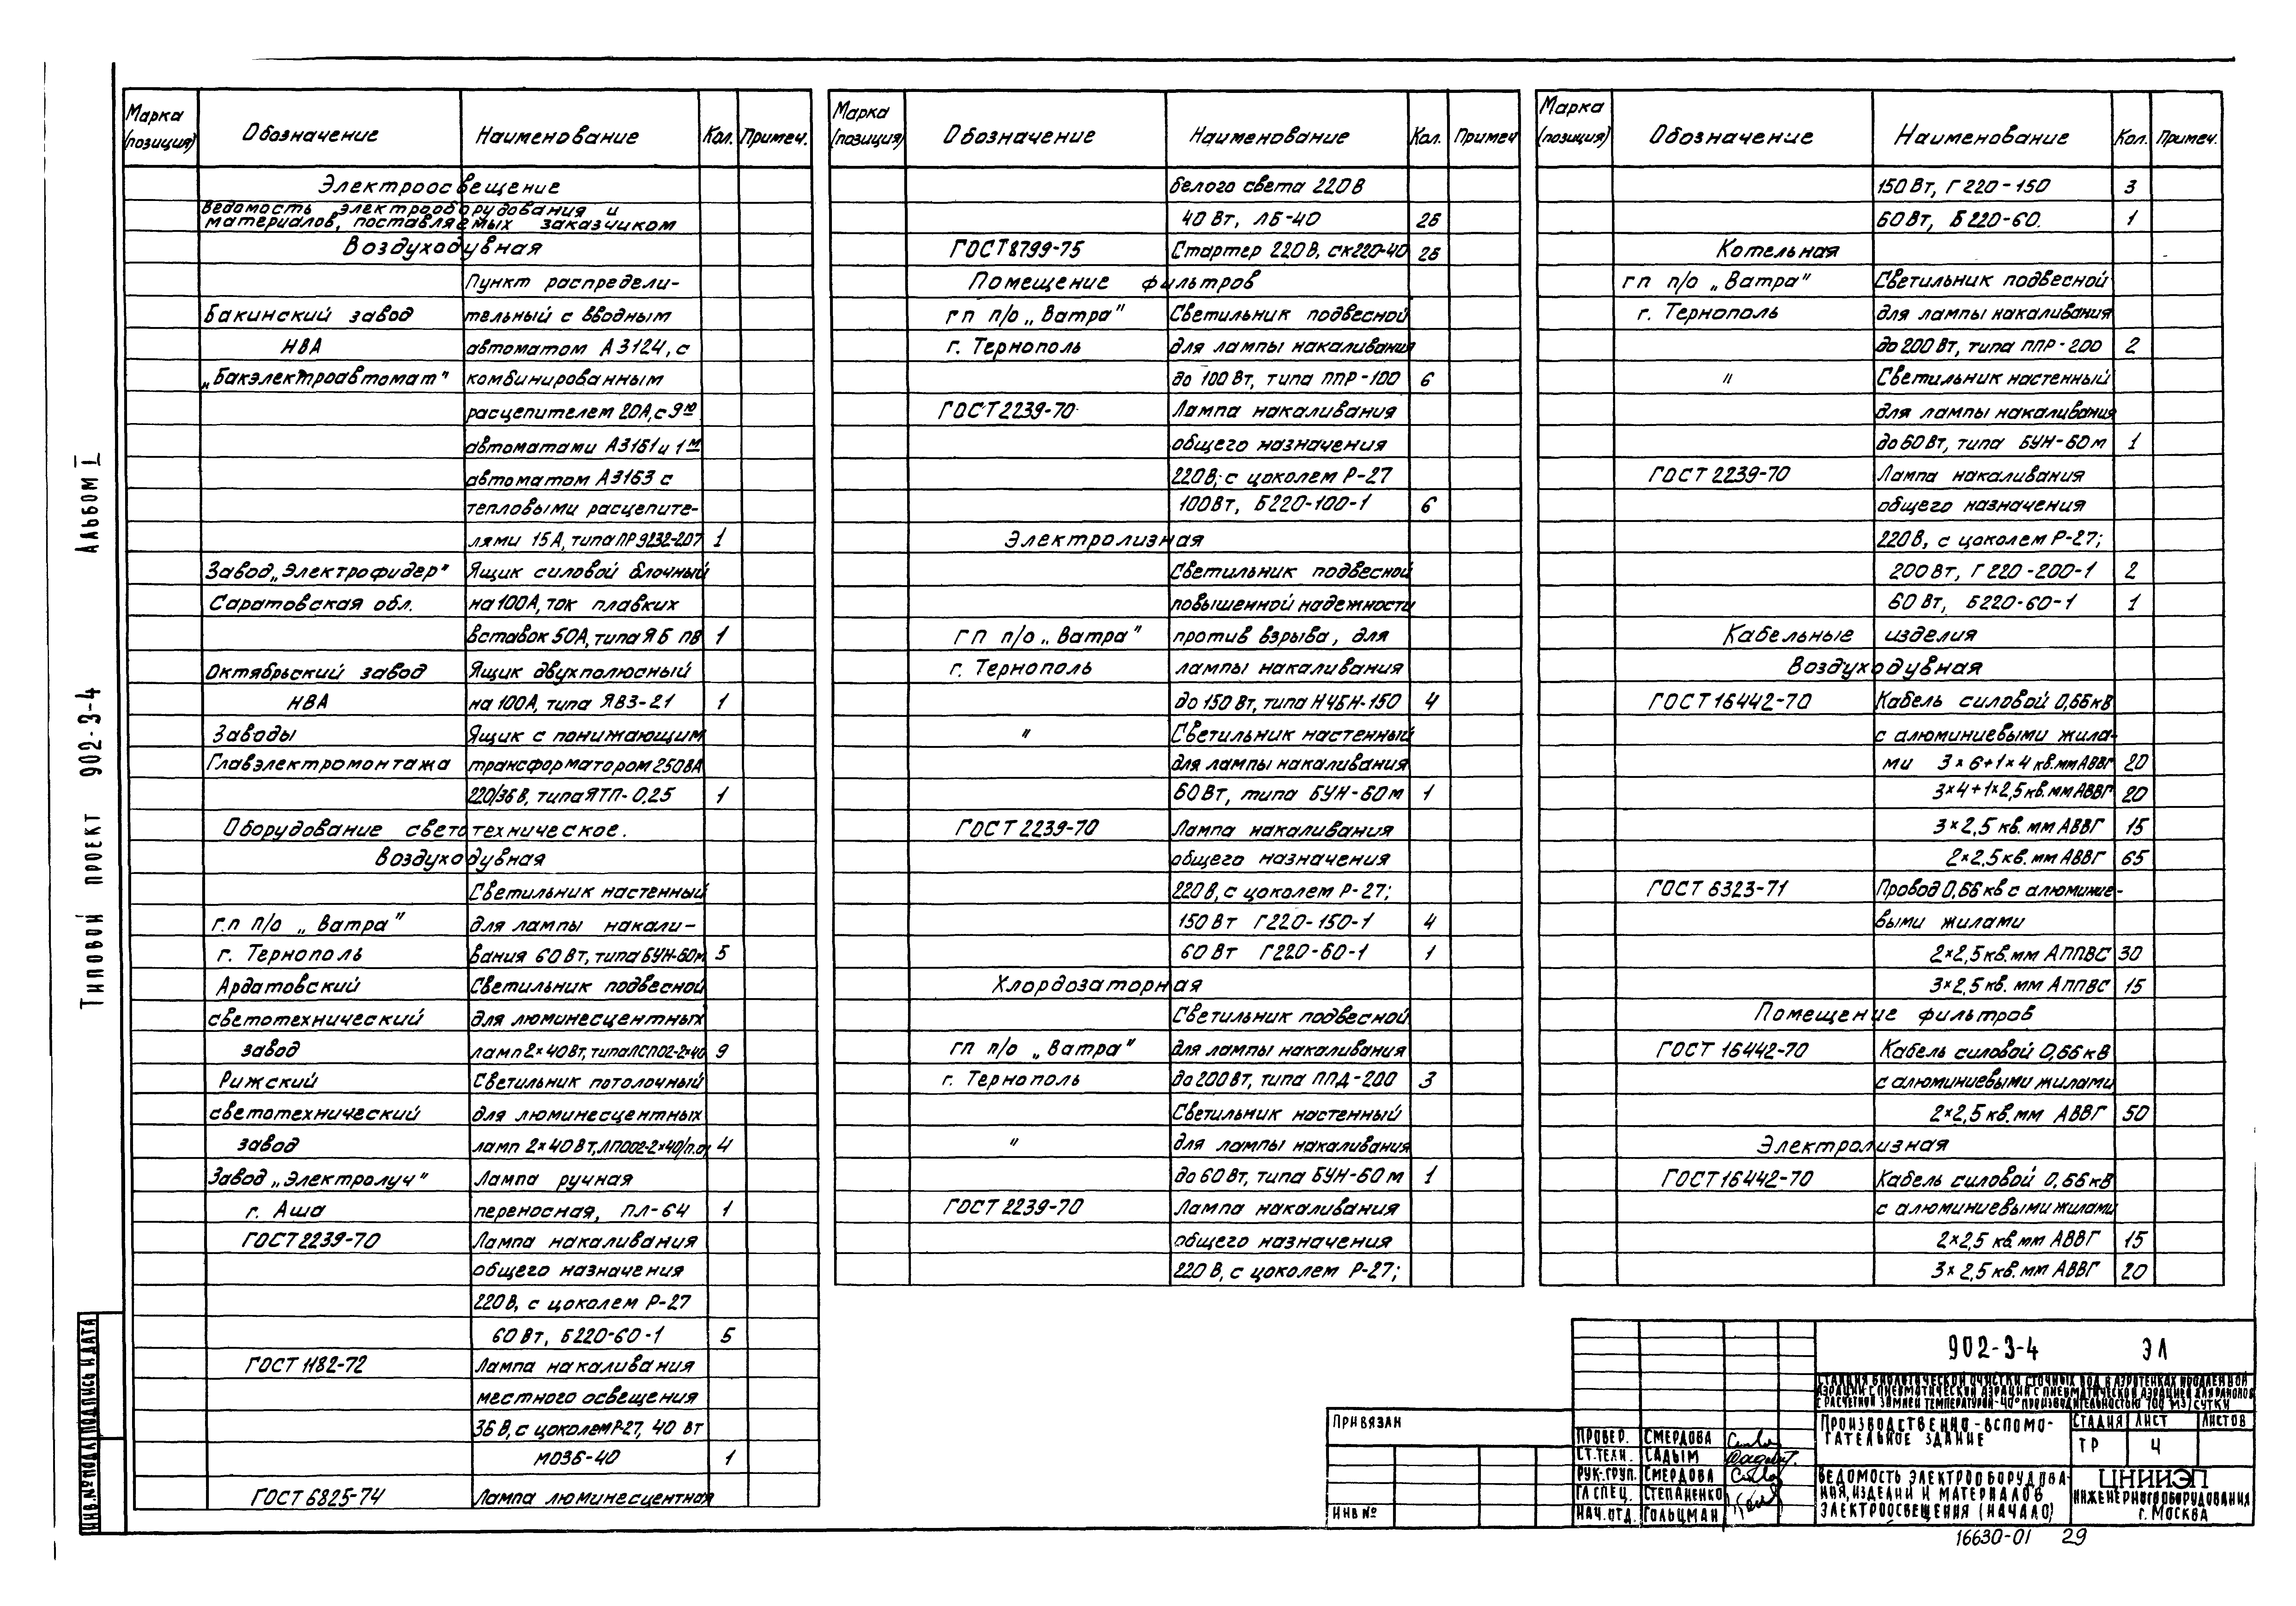 Альбом I
Типовой проект 902-3-4
Инв.№ подл. Подпись и дата
Марка (позиция) Обозначение Наименование Кол. Примеч.
Электроосвещение
Ведомость электрооборудования и
материалов, поставляемых заказчиком
Воздуходувная
Пункт распредели-
Бакинский завод тельный с вводным
НВА автоматом А3124, с
„Бакэлектроавтомат" комбинированным
расцепителем 20А, с 9ю
автоматами А3161 и 1м
автоматом А3163 с
тепловыми расцепите-
лями 15А, типа ПР9232-207 1
Завод „Электрофидер" Ящик силовой блочный
Саратовская обл. на 100А, ток плавких
вставок 50А, типа ЯБ ПВ 1
Октябрьский завод Ящик двухполюсный
НВА на 100А, типа ЯВЗ-21 1
Заводы Ящик с понижающим
Главэлектромонтажа трансформатором 250ВА
220/36В, типа ЯТП-0,25 1
Оборудование светотехническое.
Воздуходувная
Светильник настенный
г.п п/о „Ватра" для лампы накали-
г. Тернополь вания 60Вт, типа БУН-60м 5
Ардатовский Светильник подвесной
светотехнический для люминесцентных
завод ламп 2×40Вт, типа ЛСП02-2×40 9
Рижский Светильник потолочный
светотехнический для люминесцентных
завод ламп 2×40Вт, ЛПО02-2×40/п.о, 4
Завод „Электролуч" Лампа ручная
г. Аша переносная, ПЛ-64 1
ГОСТ 2239-70 Лампа накаливания
общего назначения
220В, с цоколем Р-27
60Вт, Б220-60-1 5
ГОСТ 1182-72 Лампа накаливания
местного освещения
36В, с цоколем Р-27, 40 вт
МО36-40 1
ГОСТ 6825-74 Лампа люминесцентная
Марка (позиция) Обозначение Наименование Кол. Примеч
белого света 220В
40Вт, ЛБ-40 26
ГОСТ 8799-75 Стартер 220В, СК220-40 26
Помещение фильтров
гп п/о „Ватра" Светильник подвесной
г. Тернополь для лампы накаливания
до 100Вт, типа ППР-100 6
ГОСТ 2239-70 Лампа накаливания
общего назначения
220В; с цоколем Р-27
100Вт, Б220-100-1 6
Электролизная
Светильник подвесной
повышенной надежности
гп п/о „Ватра" против взрыва, для
г. Тернополь лампы накаливания
до 150Вт, типа Н4БН-150 4
" Светильник настенный
для лампы накаливания
60Вт, типа БУН-60м 1
ГОСТ 2239-70 Лампа накаливания
общего назначения
220В, с цоколем Р-27;
150Вт Г220-150-1 4
60Вт Г220-60-1 1
Хлордозаторная
Светильник подвесной
гп п/о „Ватра" для лампы накаливания
г. Тернополь до 200Вт, типа ППД-200 3
Светильник настенный
" для лампы накаливания
до 60Вт, типа БУН-60м 1
ГОСТ 2239-70 Лампа накаливания
общего назначения
220В, с цоколем Р-27;
Марка (позиция) Обозначение Наименование Кол. Примеч.
150Вт, Г220-150 3
60Вт, Б220-60. 1
Котельная
гп п/о „Ватра" Светильник подвесной
г. Тернополь для лампы накаливания
до 200Вт, типа ППР-200 2
" Светильник настенный
для лампы накаливания
до 60Вт, типа БУН-60м 1
ГОСТ 2239-70 Лампа накаливания
общего назначения
220В, с цоколем Р-27;
200Вт, Г220-200-1 2
60Вт, Б220-60-1 1
Кабельные изделия
Воздуходувная
ГОСТ 16442-70 Кабель силовой 0,66кВ
с алюминиевыми жила-
ми 3×6+1×4 кв.мм АВВГ 20
3×4+1×2,5кв.мм АВВГ 20
3×2,5 кв.мм АВВГ 15
2×2,5кв.мм АВВГ 65
ГОСТ 6323-71 Провод 0,66кв с алюминие-
выми жилами
2×2,5кв.мм АППВС 30
3×2,5кв.мм АППВС 15
Помещение фильтров
ГОСТ 16442-70 Кабель силовой 0,66кВ
с алюминиевыми жилами
2×2,5кв.мм АВВГ 50
Электролизная
ГОСТ 16442-70 Кабель силовой 0,66кВ
с алюминиевыми жилами
2×2,5 кв.мм АВВГ 15
3×2,5кв.мм АВВГ 20
Привязан
Инв №
902-3-4 ЭЛ
Станция биологической очистки сточных вод в аэротенках продленной
аэрации с пневматической аэрации с пневматической аэрацией для районов
с расчетной зимней температурой -40° производительностью 700 м3/сутки
Провер. Смердова
Ст.техн. Садым
Рук.груп. Смердова
Гл.спец. Степаненко
Нач.отд. Гольцман
Производственно-вспомо-
гательное здание
Стадия Лист Листов
ТР 4
Ведомость электрооборудова-
ния, изделий и материалов
электроосвещения (начало)
ЦНИИЭП
инженерного оборудования
г. Москва
16630-01 29